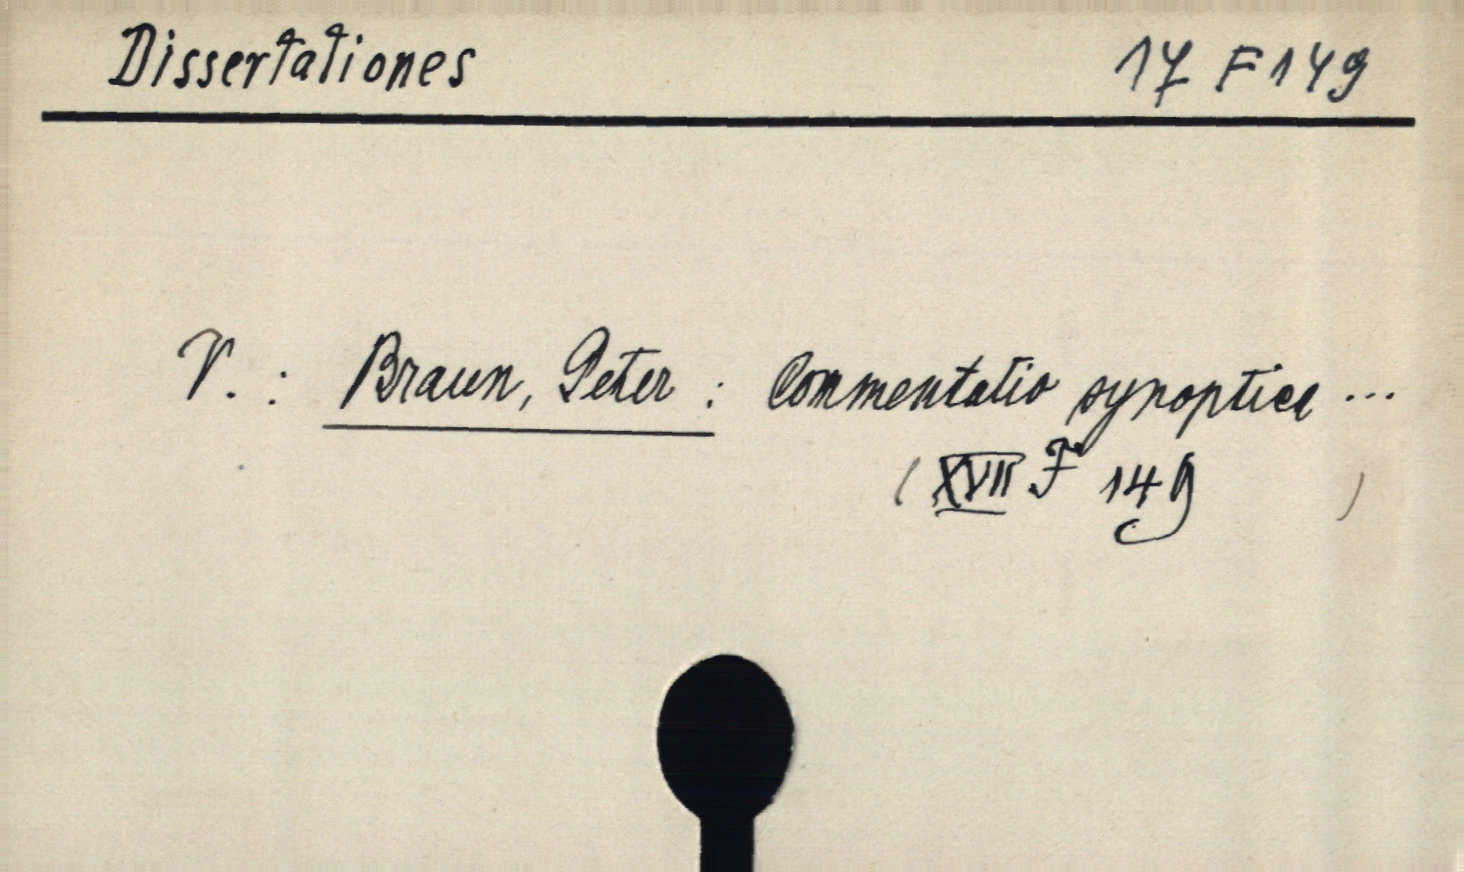 Dissertationes 17 F 149
V. : Braun, Peter : Commentatio synoptica ...
( XVII F 149 )